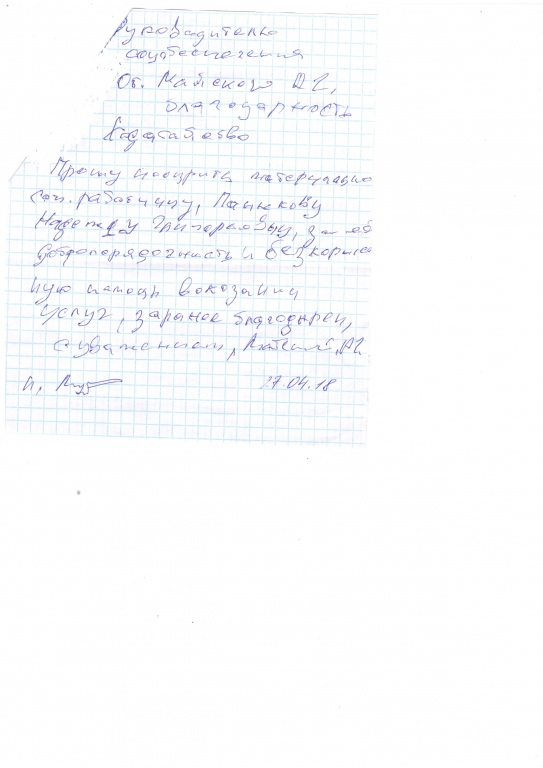 Руководителю
соцобеспечения
От. Майского А2,
благодарность
Ходатайство
Прошу поощрить материально
соц. работницу, Панюкову
Надежду за её
добропорядочность и бескорыс
ную помощь в оказании
услуг, заранее благодарен,
с уважением,
27.04.18